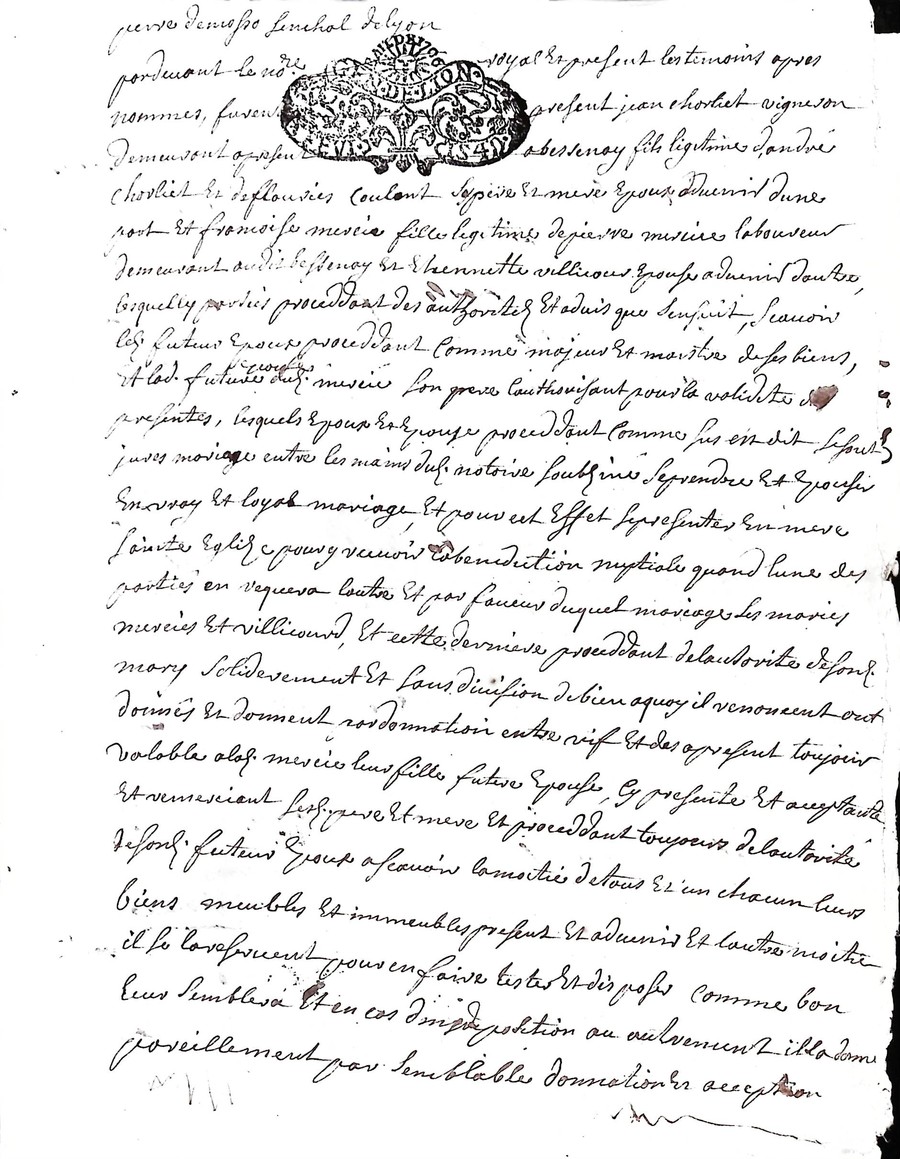 pierre demosso senchal delyon
pardevant le nore royal Et present les temoins apres
nommes, furent present jean chorliet vigneron
demeurant apresent abessenay fils legitime dandré
chorliet Et de fleuries coulent sespere Et mere Epoux advenir dune
part Et francoise mercie fille legitime de pierre mercier laboureur
demeurant audit bessenay Et Ethiennette villicour Epouse advenir dautre,
lesquelly parties proceddant des authoritéz Et advis que sensuit, scavoir
led. futeur Epoux proceddant comme majeur Et maistre de ses biens,
Et lad. future Epouse dud. mercie son pere lauthorisant pour la validite d
presentes, lesquels Epoux Et Epouse proceddant comme sus est dit se sont
jures mariage entre les mains dud. notaire soubsiné se prendre Et Epouser
En vray Et loyal mariage, Et pour cet Effet se presenter En mere
sainte Eglize pour y recevoir la benediction nuptiale quand lune des
parties en requera lautre Et par faveur duquel mariage les maries
mercies Et villicourd, Et cette derniere proceddant de lautorite de sond.
mary soliderement Et sans division de bien aquoy il renoncent ont
donnés Et donnent par donnation entre vif Et des apresent toujour
valable alad. mercie leur fille future Epouse, Cy presente Et aceptante
Et remerciant sesd. pere Et mere Et proceddant toujours de lautorité
de sond. futeur Epoux a scavoir la moitié de tous Et un chacun leurs
biens meubles Et immeubles present Et advenir Et lautre moitie
il se la reservent pour en faire tester Et disposer comme bon
leur semblera Et en cas dindisposition ou aultrement il la donne
pareillement par semblable donnation Et acception
DE LION